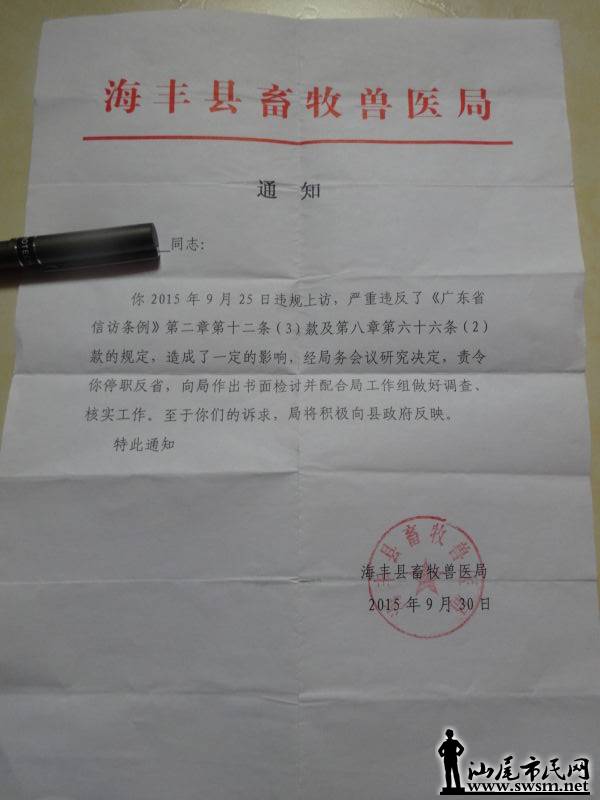 海丰县畜牧兽医局
通 知
同志：
你 2015 年 9 月 25 日违规上访，严重违反了《广东省
信访条例》第二章第十二条（3）款及第八章第六十六条（2）
款的规定，造成了一定的影响，经局务会议研究决定，责令
你停职反省，向局作出书面检讨并配合局工作组做好调查、
核实工作。至于你们的诉求，局将积极向县政府反映。
特此通知
海丰县畜牧兽医局
海丰县畜牧兽医局
2015 年 9 月 30 日
汕尾市民网
www.swsm.net